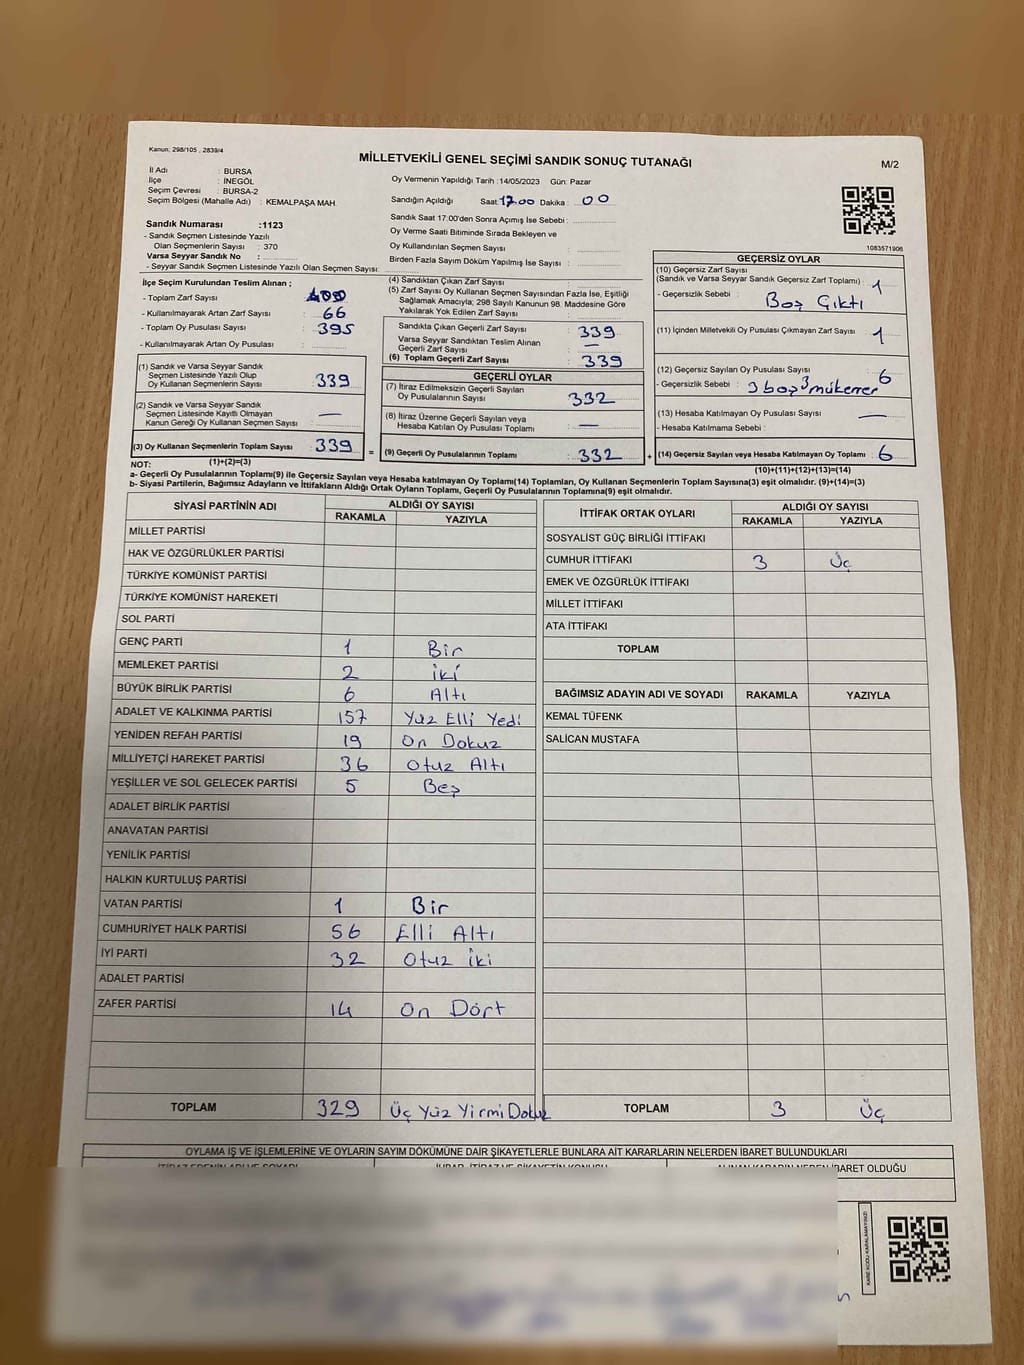 Kanun: 298/105 , 2839/4
MİLLETVEKİLİ GENEL SEÇİMİ SANDIK SONUÇ TUTANAĞI
M/2
İl Adı : BURSA
İlçe : İNEGÖL
Seçim Çevresi : BURSA-2
Seçim Bölgesi (Mahalle Adı) : KEMALPAŞA MAH.
Oy Vermenin Yapıldığı Tarih :14/05/2023 Gün: Pazar
Sandığın Açıldığı Saat:17.00 Dakika : 00
Sandık Saat 17:00'den Sonra Açımış İse Sebebi :
Oy Verme Saati Bitiminde Sırada Bekleyen ve
Oy Kullandırılan Seçmen Sayısı :
Birden Fazla Sayım Döküm Yapılmış İse Sayısı :
1083571906
Sandık Numarası :1123
- Sandık Seçmen Listesinde Yazılı
Olan Seçmenlerin Sayısı : 370
Varsa Seyyar Sandık No :
- Seyyar Sandık Seçmen Listesinde Yazılı Olan Seçmen Sayısı:
İlçe Seçim Kurulundan Teslim Alınan ;
- Toplam Zarf Sayısı : 400
- Kullanılmayarak Artan Zarf Sayısı : 66
- Toplam Oy Pusulası Sayısı : 395
- Kullanılmayarak Artan Oy Pusulası :
(1) Sandık ve Varsa Seyyar Sandık
Seçmen Listesinde Yazılı Olup
Oy Kullanan Seçmenlerin Sayısı : 339
(2) Sandık ve Varsa Seyyar Sandık
Seçmen Listesinde Kayıtlı Olmayan
Kanun Gereği Oy Kullanan Seçmen Sayısı : —
(3) Oy Kullanan Seçmenlerin Toplam Sayısı : 339
(1)+(2)=(3)
(4) Sandıktan Çıkan Zarf Sayısı :
(5) Zarf Sayısı Oy Kullanan Seçmen Sayısından Fazla İse, Eşitliği
Sağlamak Amacıyla; 298 Sayılı Kanunun 98. Maddesine Göre
Yakılarak Yok Edilen Zarf Sayısı :
Sandıkta Çıkan Geçerli Zarf Sayısı : 339
Varsa Seyyar Sandıktan Teslim Alınan
Geçerli Zarf Sayısı : —
(6) Toplam Geçerli Zarf Sayısı : 339
GEÇERLİ OYLAR
(7) İtiraz Edilmeksizin Geçerli Sayılan
Oy Pusulalarının Sayısı : 332
(8) İtiraz Üzerine Geçerli Sayılan veya
Hesaba Katılan Oy Pusulası Toplamı : —
= (9) Geçerli Oy Pusulalarının Toplamı : 332
GEÇERSİZ OYLAR
(10) Geçersiz Zarf Sayısı
(Sandık ve Varsa Seyyar Sandık Geçersiz Zarf Toplamı) : 1
- Geçersizlik Sebebi : Boş Çıktı
(11) İçinden Milletvekili Oy Pusulası Çıkmayan Zarf Sayısı : 1
(12) Geçersiz Sayılan Oy Pusulası Sayısı : 6
- Geçersizlik Sebebi : 3 boş 3 mükerrer
(13) Hesaba Katılmayan Oy Pusulası Sayısı : —
- Hesaba Katılmama Sebebi :
+ (14) Geçersiz Sayılan veya Hesaba Katılmayan Oy Toplamı : 6
(10)+(11)+(12)+(13)=(14)
NOT:
a- Geçerli Oy Pusulalarının Toplamı(9) ile Geçersiz Sayılan veya Hesaba katılmayan Oy Toplamı(14) Toplamları, Oy Kullanan Seçmenlerin Toplam Sayısına(3) eşit olmalıdır. (9)+(14)=(3)
b- Siyasi Partilerin, Bağımsız Adayların ve İttifakların Aldığı Ortak Oyların Toplamı, Geçerli Oy Pusulalarının Toplamına(9) eşit olmalıdır.
SİYASİ PARTİNİN ADI ALDIĞI OY SAYISI
RAKAMLA YAZIYLA
MİLLET PARTİSİ
HAK VE ÖZGÜRLÜKLER PARTİSİ
TÜRKİYE KOMÜNİST PARTİSİ
TÜRKİYE KOMÜNİST HAREKETİ
SOL PARTİ
GENÇ PARTİ 1 Bir
MEMLEKET PARTİSİ 2 iki
BÜYÜK BİRLİK PARTİSİ 6 Altı
ADALET VE KALKINMA PARTİSİ 157 Yüz Elli Yedi
YENİDEN REFAH PARTİSİ 19 On Dokuz
MİLLİYETÇİ HAREKET PARTİSİ 36 Otuz Altı
YEŞİLLER VE SOL GELECEK PARTİSİ 5 Beş
ADALET BİRLİK PARTİSİ
ANAVATAN PARTİSİ
YENİLİK PARTİSİ
HALKIN KURTULUŞ PARTİSİ
VATAN PARTİSİ 1 Bir
CUMHURİYET HALK PARTİSİ 56 Elli Altı
İYİ PARTİ 32 Otuz iki
ADALET PARTİSİ
ZAFER PARTİSİ 14 On Dört
TOPLAM 329 Üç Yüz Yirmi Dokuz
İTTİFAK ORTAK OYLARI ALDIĞI OY SAYISI
RAKAMLA YAZIYLA
SOSYALİST GÜÇ BİRLİĞİ İTTİFAKI
CUMHUR İTTİFAKI 3 Üç
EMEK VE ÖZGÜRLÜK İTTİFAKI
MİLLET İTTİFAKI
ATA İTTİFAKI
TOPLAM
BAĞIMSIZ ADAYIN ADI VE SOYADI RAKAMLA YAZIYLA
KEMAL TÜFENK
SALİCAN MUSTAFA
TOPLAM 3 Üç
OYLAMA İŞ VE İŞLEMLERİNE VE OYLARIN SAYIM DÖKÜMÜNE DAİR ŞİKAYETLERLE BUNLARA AİT KARARLARIN NELERDEN İBARET BULUNDUKLARI
ALINAN KARARIN NEDEN İBARET OLDUĞU
KARE KODU KARALAMAYINIZ!